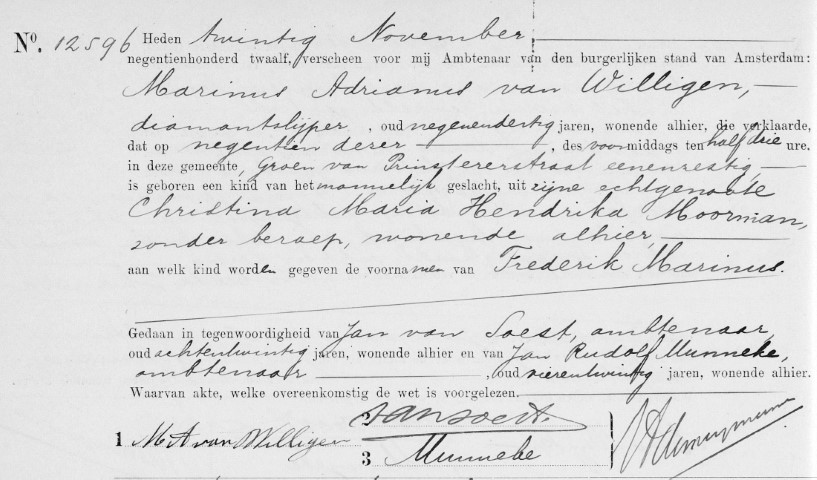 No. 12596 Heden twintig November
negentienhonderd twaalf, verscheen voor mij Ambtenaar van den burgerlijken stand van Amsterdam:
Marinus Adrianus van Willigen,
diamantslijper, oud negenendertig jaren, wonende alhier, die verklaarde,
dat op negentien dezer, des voormiddags ten half drie ure.
in deze gemeente, Groen van Prinstererstraat eenenzestig,
is geboren een kind van het mannelijk geslacht, uit zijne echtgenoote
Christina Maria Hendrika Moorman,
zonder beroep, wonende alhier,
aan welk kind worden gegeven de voornamen van Frederik Marinus.
Gedaan in tegenwoordigheid van Jan van Soest, ambtenaar,
oud achtentwintig jaren, wonende alhier en van Jan Rudolf Munneke,
ambtenaar, oud vierentwintig jaren, wonende alhier.
Waarvan akte, welke overeenkomstig de wet is voorgelezen.
1 M A van Willigen
JvanSoest.
3 Munneke